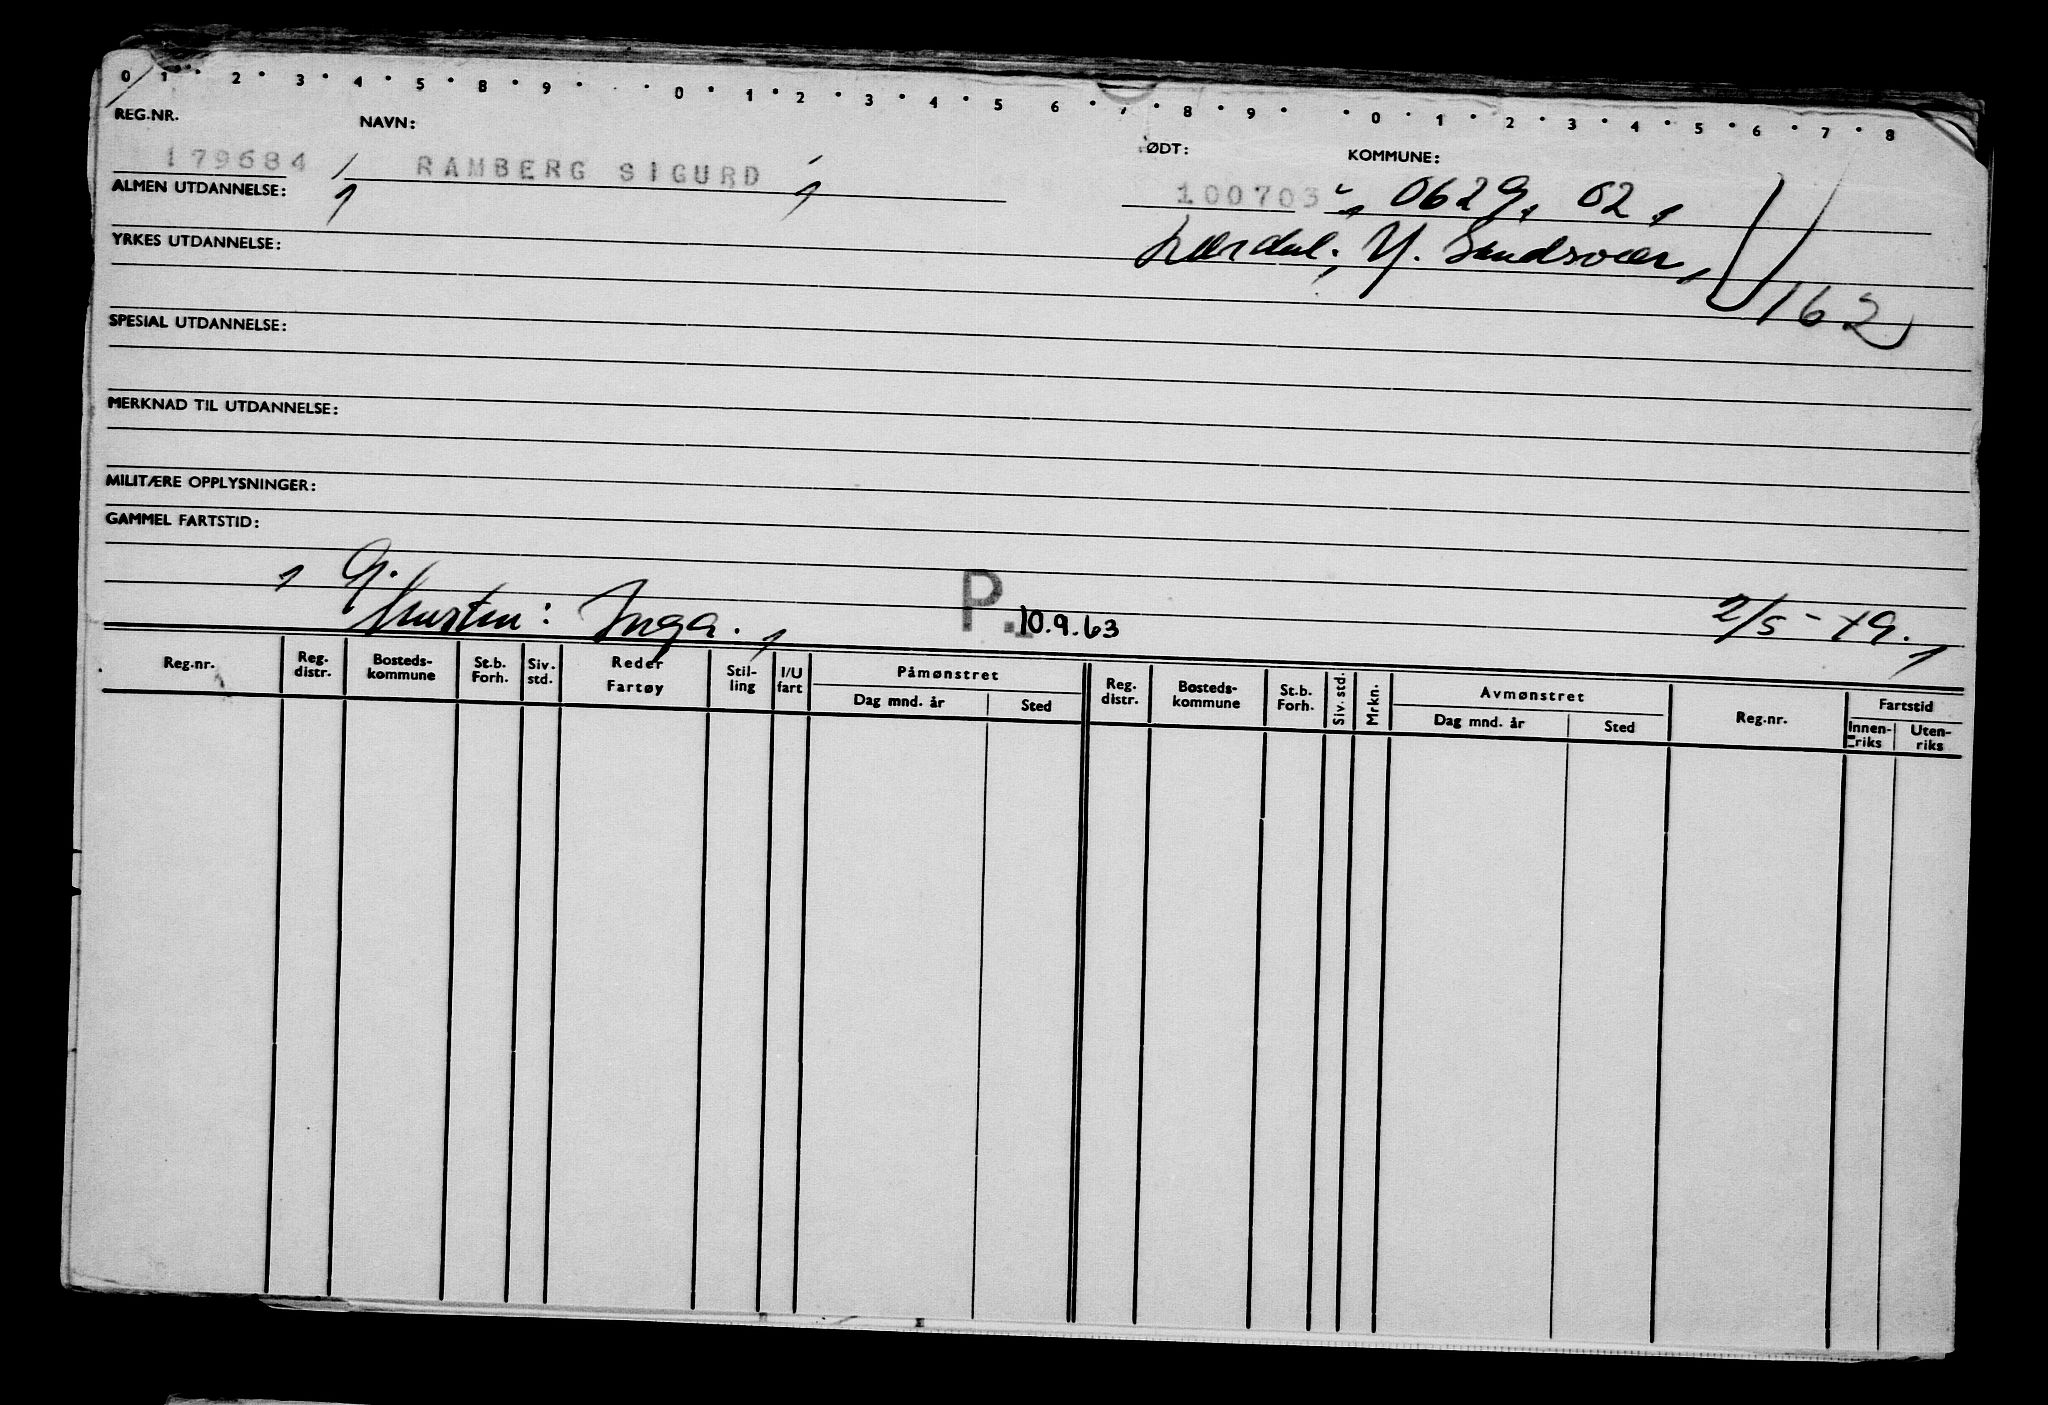 0 1 2 3 4 5 8 9 0 1 2 3 4 5 6 7 8 9 0 1 2 3 4 5 6 7 8
REG.NR. NAVN: ØDT: KOMMUNE:
179684 RAMBERG SIGURD 100703 0629, 02,
ALMEN UTDANNELSE:
Lærdal, Y. Sandsvær,
YRKES UTDANNELSE:
162
SPESIAL UTDANNELSE:
MERKNAD TIL UTDANNELSE:
MILITÆRE OPPLYSNINGER:
GAMMEL FARTSTID:
G.
Hustru: Inga. P. 10.9.63 2/5-49.
Reg.nr. Reg. distr. Bosteds-kommune St.b. Forh. Siv. std. Reder Fartøy Stil-ling I/U fart Påmønstret Dag mnd. år Sted Reg. distr. Bosteds-kommune St.b. Forh. Siv. std. Mrkn. Avmønstret Dag mnd. år Sted Reg.nr. Fartstid Innen-riks Uten-riks